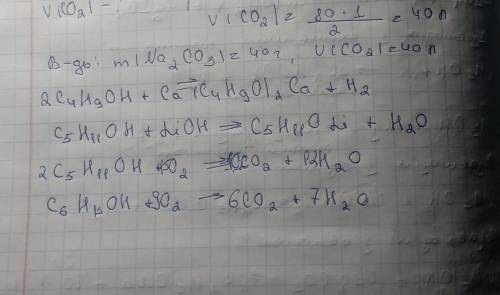 V(CO₂) =
V(CO₂) = 80 · 1 / 2 = 40 л
В-дь: m(Na₂CO₃) = 40г, V(CO₂) = 40л
2C₄H₉OH + Ca → (C₄H₉O)₂Ca + H₂
C₅H₁₁OH + LiOH ⇒ C₅H₁₁OLi + H₂O
2C₅H₁₁OH + 15O₂ → 10CO₂ + 12H₂O
C₆H₁₃OH + 9O₂ → 6CO₂ + 7H₂O